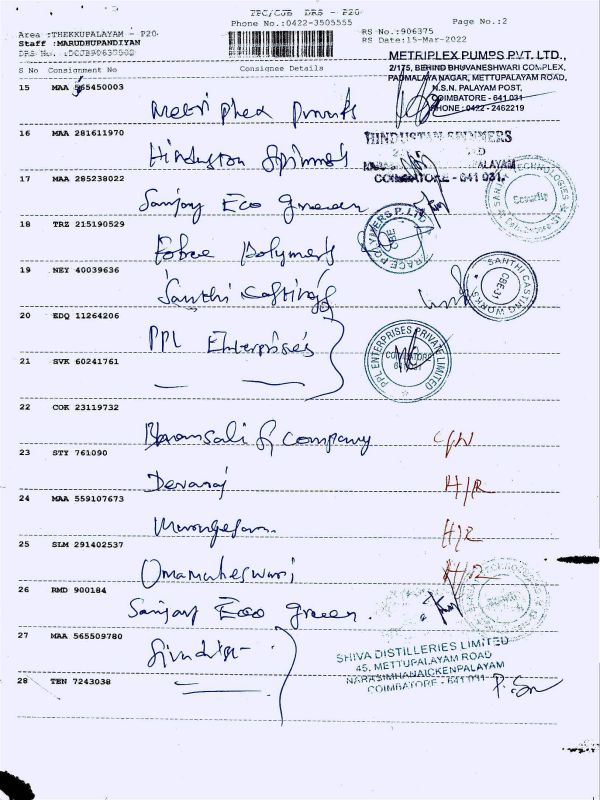 TPC/CJB DRS - P20
Phone No.:0422-3505555
Page No.:2
Area :THEKKUPALAYAM - P20
Staff :MARUDHUPANDIYAN
RS No.:906375
RS Date:15-Mar-2022
S No Consignment No Consignee Details
METRIPLEX PUMPS PVT. LTD.,
2/175, BEHIND BHUVANESHWARI COMPLEX,
PADMALAYA NAGAR, METTUPALAYAM ROAD,
N.S.N. PALAYAM POST,
COIMBATORE - 641 031
PHONE : 0422 - 2462219
15 MAA 565450003
16 MAA 281611970
Hindustan Spinners
HINDUSTAN SPINNERS
COIMBATORE - 641 031.
17 MAA 285238022
Sanjay Eco green
Security
18 TRZ 215190529
polymers
19 NEY 40039636
Santhi castings
SANTHI CASTING WORKS
CBE-31
20 EDQ 11264206
PPL Enterprises
PPL ENTERPRISES PRIVATE LIMITED
21 SVK 60241761
22 COK 23119732
Bhramsali & company
23 STY 761090
Devaraj
H/R
24 MAA 559107673
Murugesan
H/R
25 SLM 291402537
Omamaheswari
H/R
26 RMD 900184
Sanjay Eco green
27 MAA 565509780
SHIVA DISTILLERIES LIMITED
45, METTUPALAYAM ROAD
NARASIMHANAICKENPALAYAM
COIMBATORE - 641 031
28 TEN 7243038